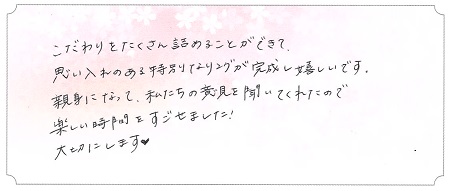 こだわりをたくさん詰めることができて、
思い入れのある特別なリングが完成し嬉しいです。
親身になって、私たちの意見を聞いてくれたので
楽しい時間をすごせました!
大切にします♥